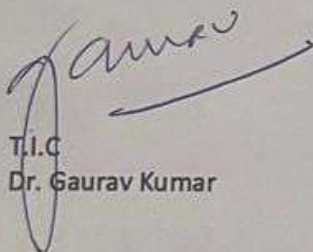 Gaurav
T.I.C
Dr. Gaurav Kumar